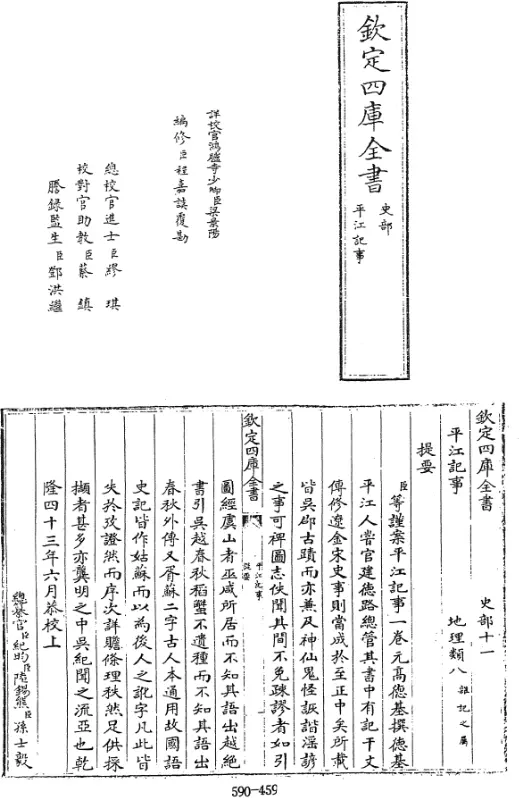 欽定四庫全書
史部
平江記事
詳校官鴻臚寺少卿臣梁景陽
編修臣程嘉謨覆勘
總校官進士臣繆琪
校對官助教臣蔡鎮
謄錄監生臣鄧洪繼
欽定四庫全書
史部十一
平江記事
地理類八雜記之屬
提要
臣等謹案平江記事一卷元高德基撰德基
平江人嘗官建德路總管其書中有記干文
傳修遼金宋史事則當成於至正中矣所載
皆吳郡古蹟而亦兼及神仙鬼怪詼諧謡諺
之事可裨圖志佚聞其間不免疎謬者如引
欽定四庫全書
平江記事
提要
圖經虞山者巫咸所居而不知其語出越絶
書引吳越春秋稻蟹不遺種而不知其語出
春秋外傳又胥蘇二字古人本通用故國語
史記皆作姑蘇而以為後人之訛字凡此皆
失於攷證然而序次詳贍條理秩然足供採
擷者甚多亦龔明之中吳紀聞之流亞也乾
隆四十三年六月恭校上
總纂官臣紀昀臣陸錫熊臣孫士毅
590-459